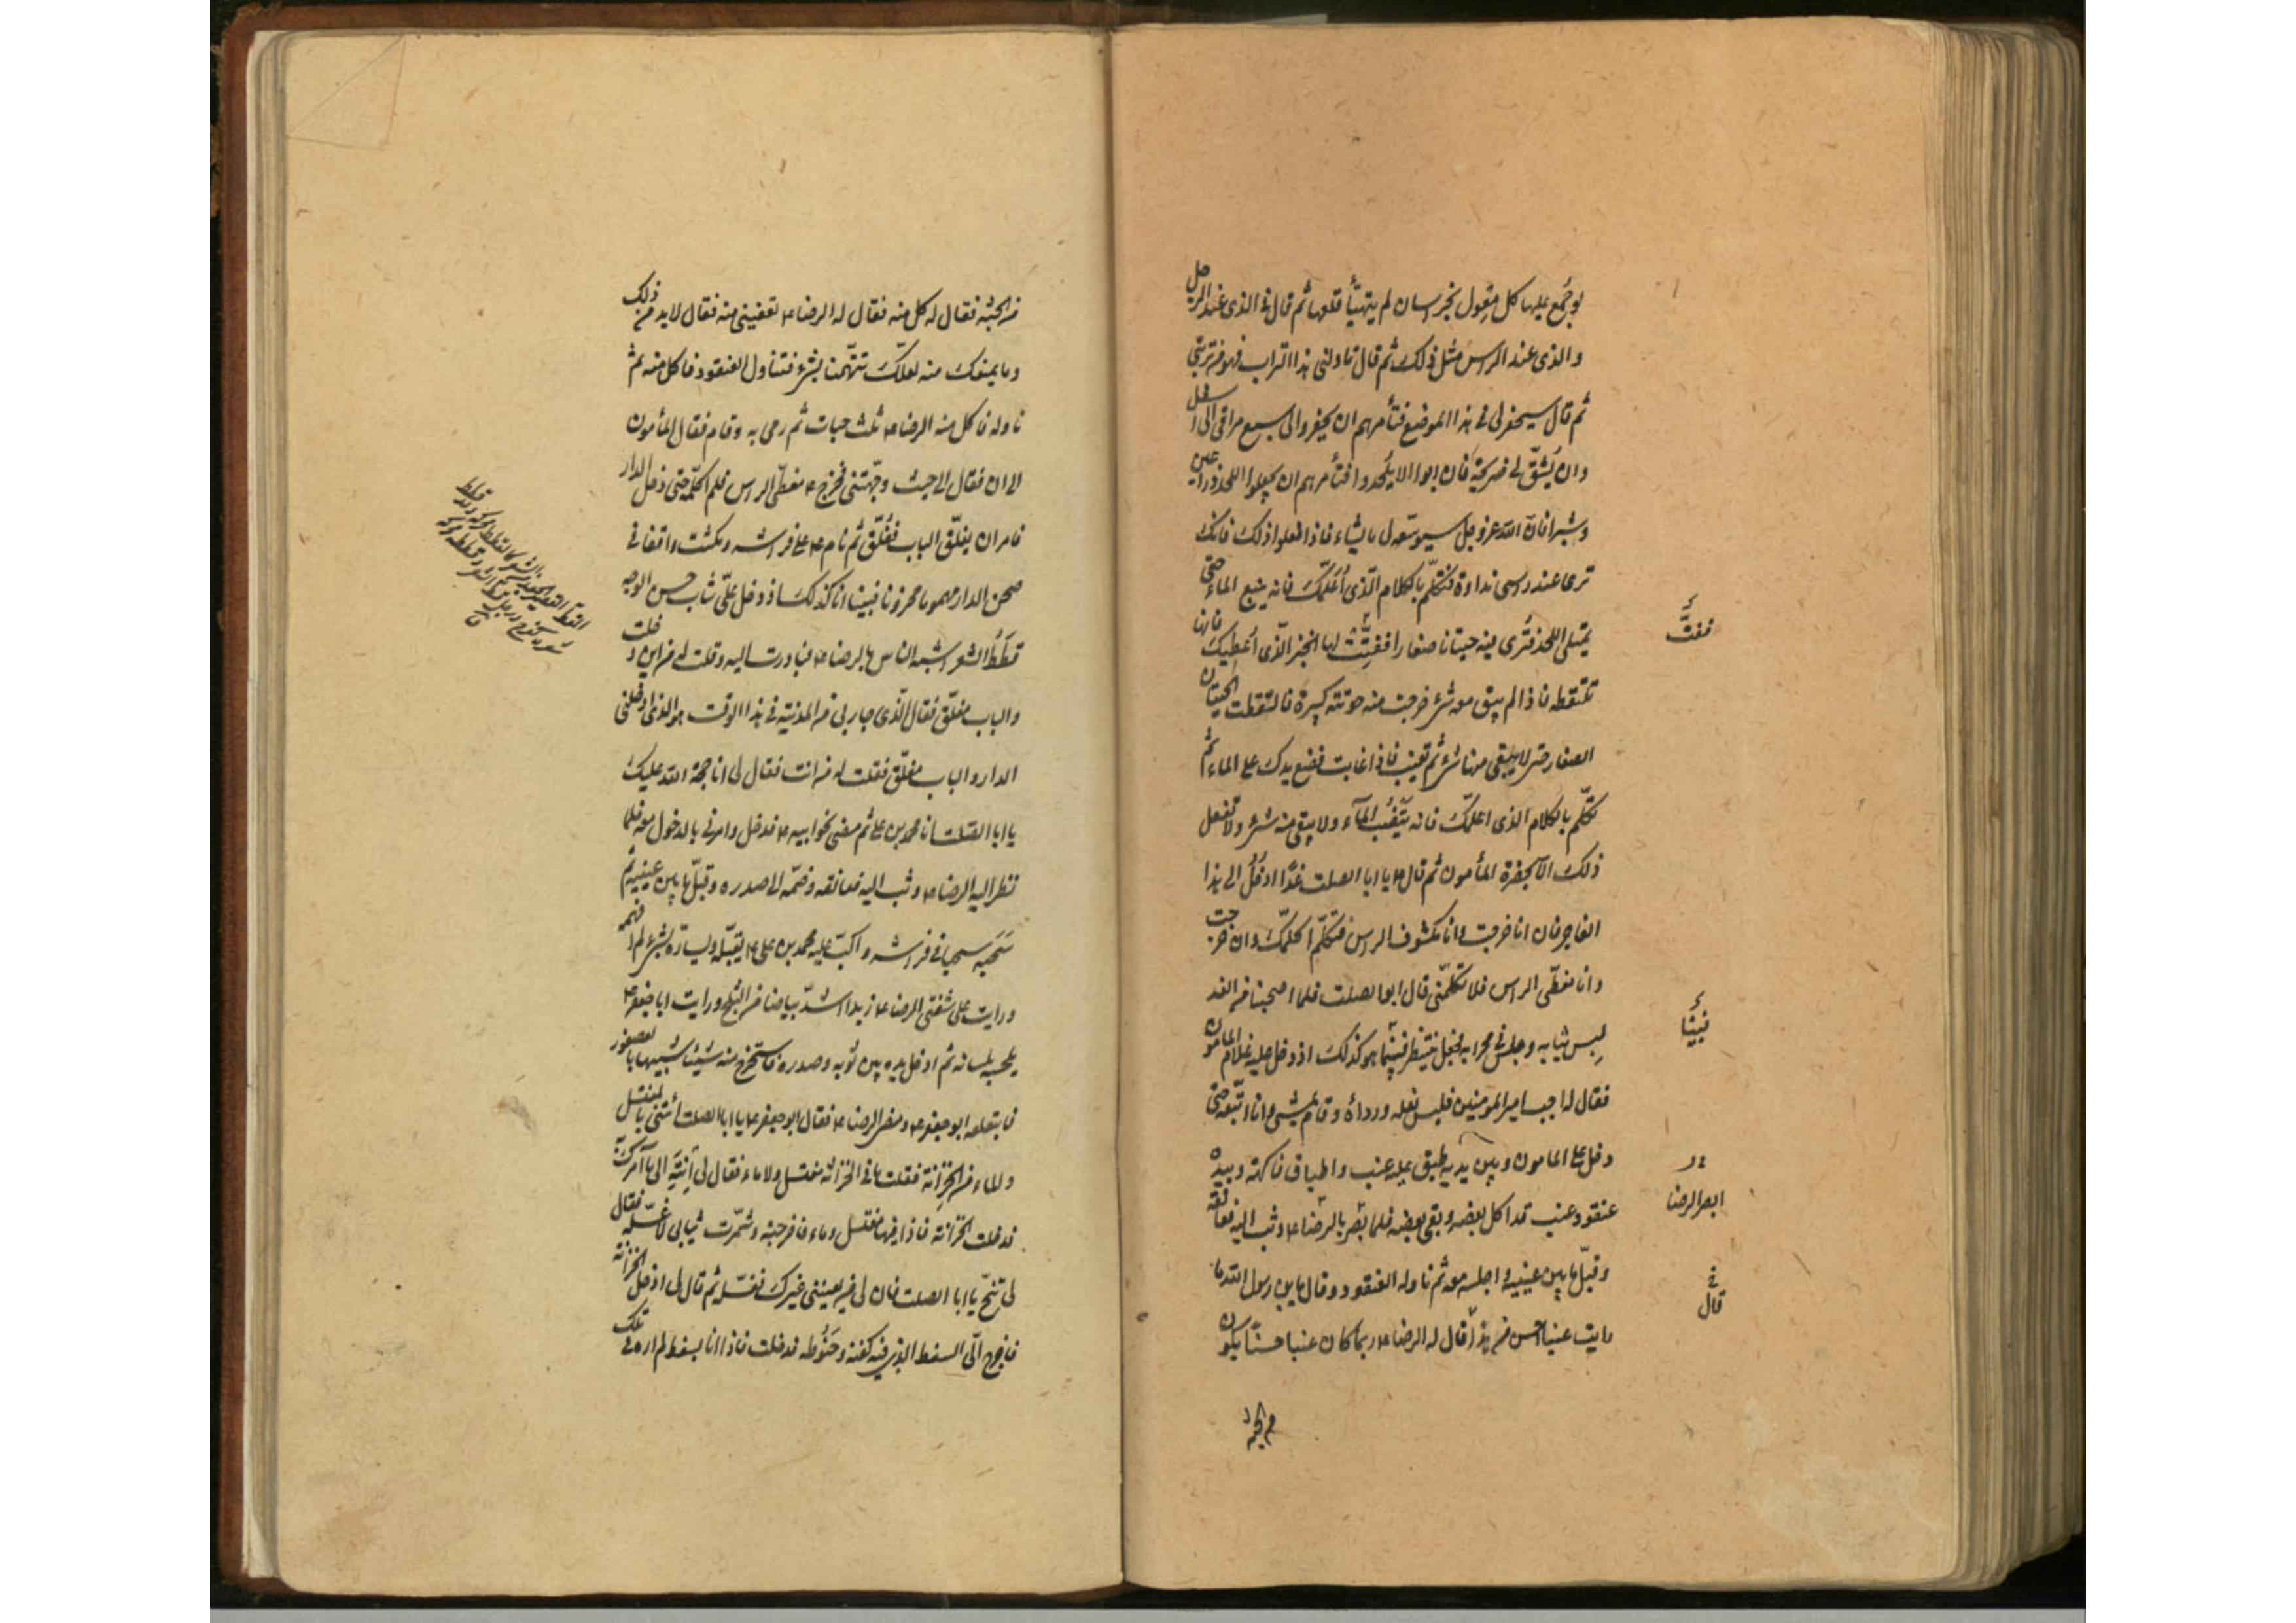 لو جُمع عليها كل مِعْول بخراسان لم يتهيّأ قلعها ثم قال في الذى عند الرجل
والذى عند الراس مثل ذلك ثم قال ناولنى هذا التراب فهو من تربتى
ثم قال سيحفر لى فى هذا الموضع فتأمرهم ان يحفروا الى سبع مراقى الى اسفل
وان يُشَقّ لى ضريحة فان ابوا الا يُلحدوا فتأمرهم ان يجعلوا اللحد ذراعين
وشبرا فان الله عز وجل سيوسّعه لى ما يشاء فاذا فعلوا ذلك فانك
ترى عند راسى نداوة فتكلّم بالكلام الّذى أُعَلّمك فانه ينبع الماء حتى
يمتلى اللحد فتُرى فيه حيتانا صغارا ففتّت لها الخبز الّذى أُعطيك فانها
تلتقطه فاذا لم يبق معه شئ خرجت منه حوتة كبيرة فالتقطت الحيتان
الصغار حتى لا يبقى منها شئ ثم تغيب فاذا غابت فضع يدك على الماء ثم
تكلّم بالكلام الذى اعلمك فانه يَنْضُبُ المآء ولا يبقى منه شئ ولا تفعل
ذلك الّا بحضرة المأمون ثم قال ع يا ابا الصلت غدًا ادخُلُ الى هذا
الفاجر فان انا خرجت وانا مكشوف الراس فتكلّم اكلمّك وان خرجت
وانا مغطّى الراس فلا تكلّمنى قال ابو الصلت فلما اصبحنا من الغد
لبس ثيابه وجلس فى محرابه فجعل ينتظر فبينما هو كذلك اذ دخل عليه غلام المامون
فقال له اجب امير المومنين فلبس نعله ورداءه وقام يمشى وانا اتّبعه حتى
دخل على المامون وبين يديه طبق عليه عنب واطباق فاكهة وبيده
عنقود عنب قد اكل بعضه وبقى بعضه فلما بصر بالرضا ع وثب اليه فعانقه
وقبّل ما بين عينيه واجلسه معه ثم ناوله العنقود وقال يا بن رسول الله ما
رايت عنبا احسن من هذا قال له الرضا ع ربما كان عنبا حسنًا يكون
ففتّت
فبينا
ابصر الرضا
قال
من الجنة
من الجنّة فقال له كل منه فقال له الرضا ع تعفينى منه فقال لا بد من ذلك
وما يمنعك منه لعلّك تتّهمنا بشئ فتناول العنقود فاكل منه ثم
ناوله فاكل منه الرضا ع ثلث حبات ثم رمى به وقام فقال المأمون
الى اين فقال الى حيث وجّهتنى فخرج ع مغطّى الراس فلم اكلّمه حتى دخل الدار
فامر ان يغلّق الباب فغُلّق ثم نام ع على فراشه ومكثت واقفا فى
صحن الدار مهموما محزونا فبينا انا كذلك اذ دخل علىّ شاب حسن الوجه
قطَطُ الشعر اشبه الناس بالرضا ع فبادرت اليه وقلت له من اين دخلت
والباب مغلّق فقال الّذى جاء بى من المدينة فى هذا الوقت هو الذى ادخلنى
الدار والباب مغلّق فقلت له من انت فقال لى انا حجة الله عليك
يا ابا الصلت انا محمد بن على ثم مضى نحو ابيه ع فدخل وامرنى بالدخول معه فلما
نظر اليه الرضا ع وثب اليه فعانقه وضمّه الى صدره وقبّل ما بين عينيه ثم
سَحَبَه سحبا فى فراشه واكبّ عليه محمد بن على ع يقبّله ويسارّه بشئ لم افهمه
ورايت على شفتى الرضا ع زبدا اشدّ بياضا من الثلج ورايت ابا جعفر ع
يلحسه بلسانه ثم ادخل يده بين ثوبه وصدره فاستخرج منه شيئا شبيها بالعصفور
فابتلعه ابو جعفر ع ومضى الرضا ع فقال ابو جعفر ع يا ابا الصلت ائتنى بالمغتسل
والماء من الخِزانة فقلت ما فى الخزانة مغتسل ولا ماء فقال لى انتَهِ الى ما آمرك به
فدخلت الخزانة فاذا فيها مغتسل وماء فاخرجته وشمّرت ثيابى لاغسّله فقال
لى تنحّ يا ابا الصلت فان لى من يعيننى غيرك فغسّله ثم قال لى ادخل الخزانة
فاخرج الىّ السفط الذى فيه كفنه وحَنُوطه فدخلت فاذا انا بسفط لم اره فى تلك